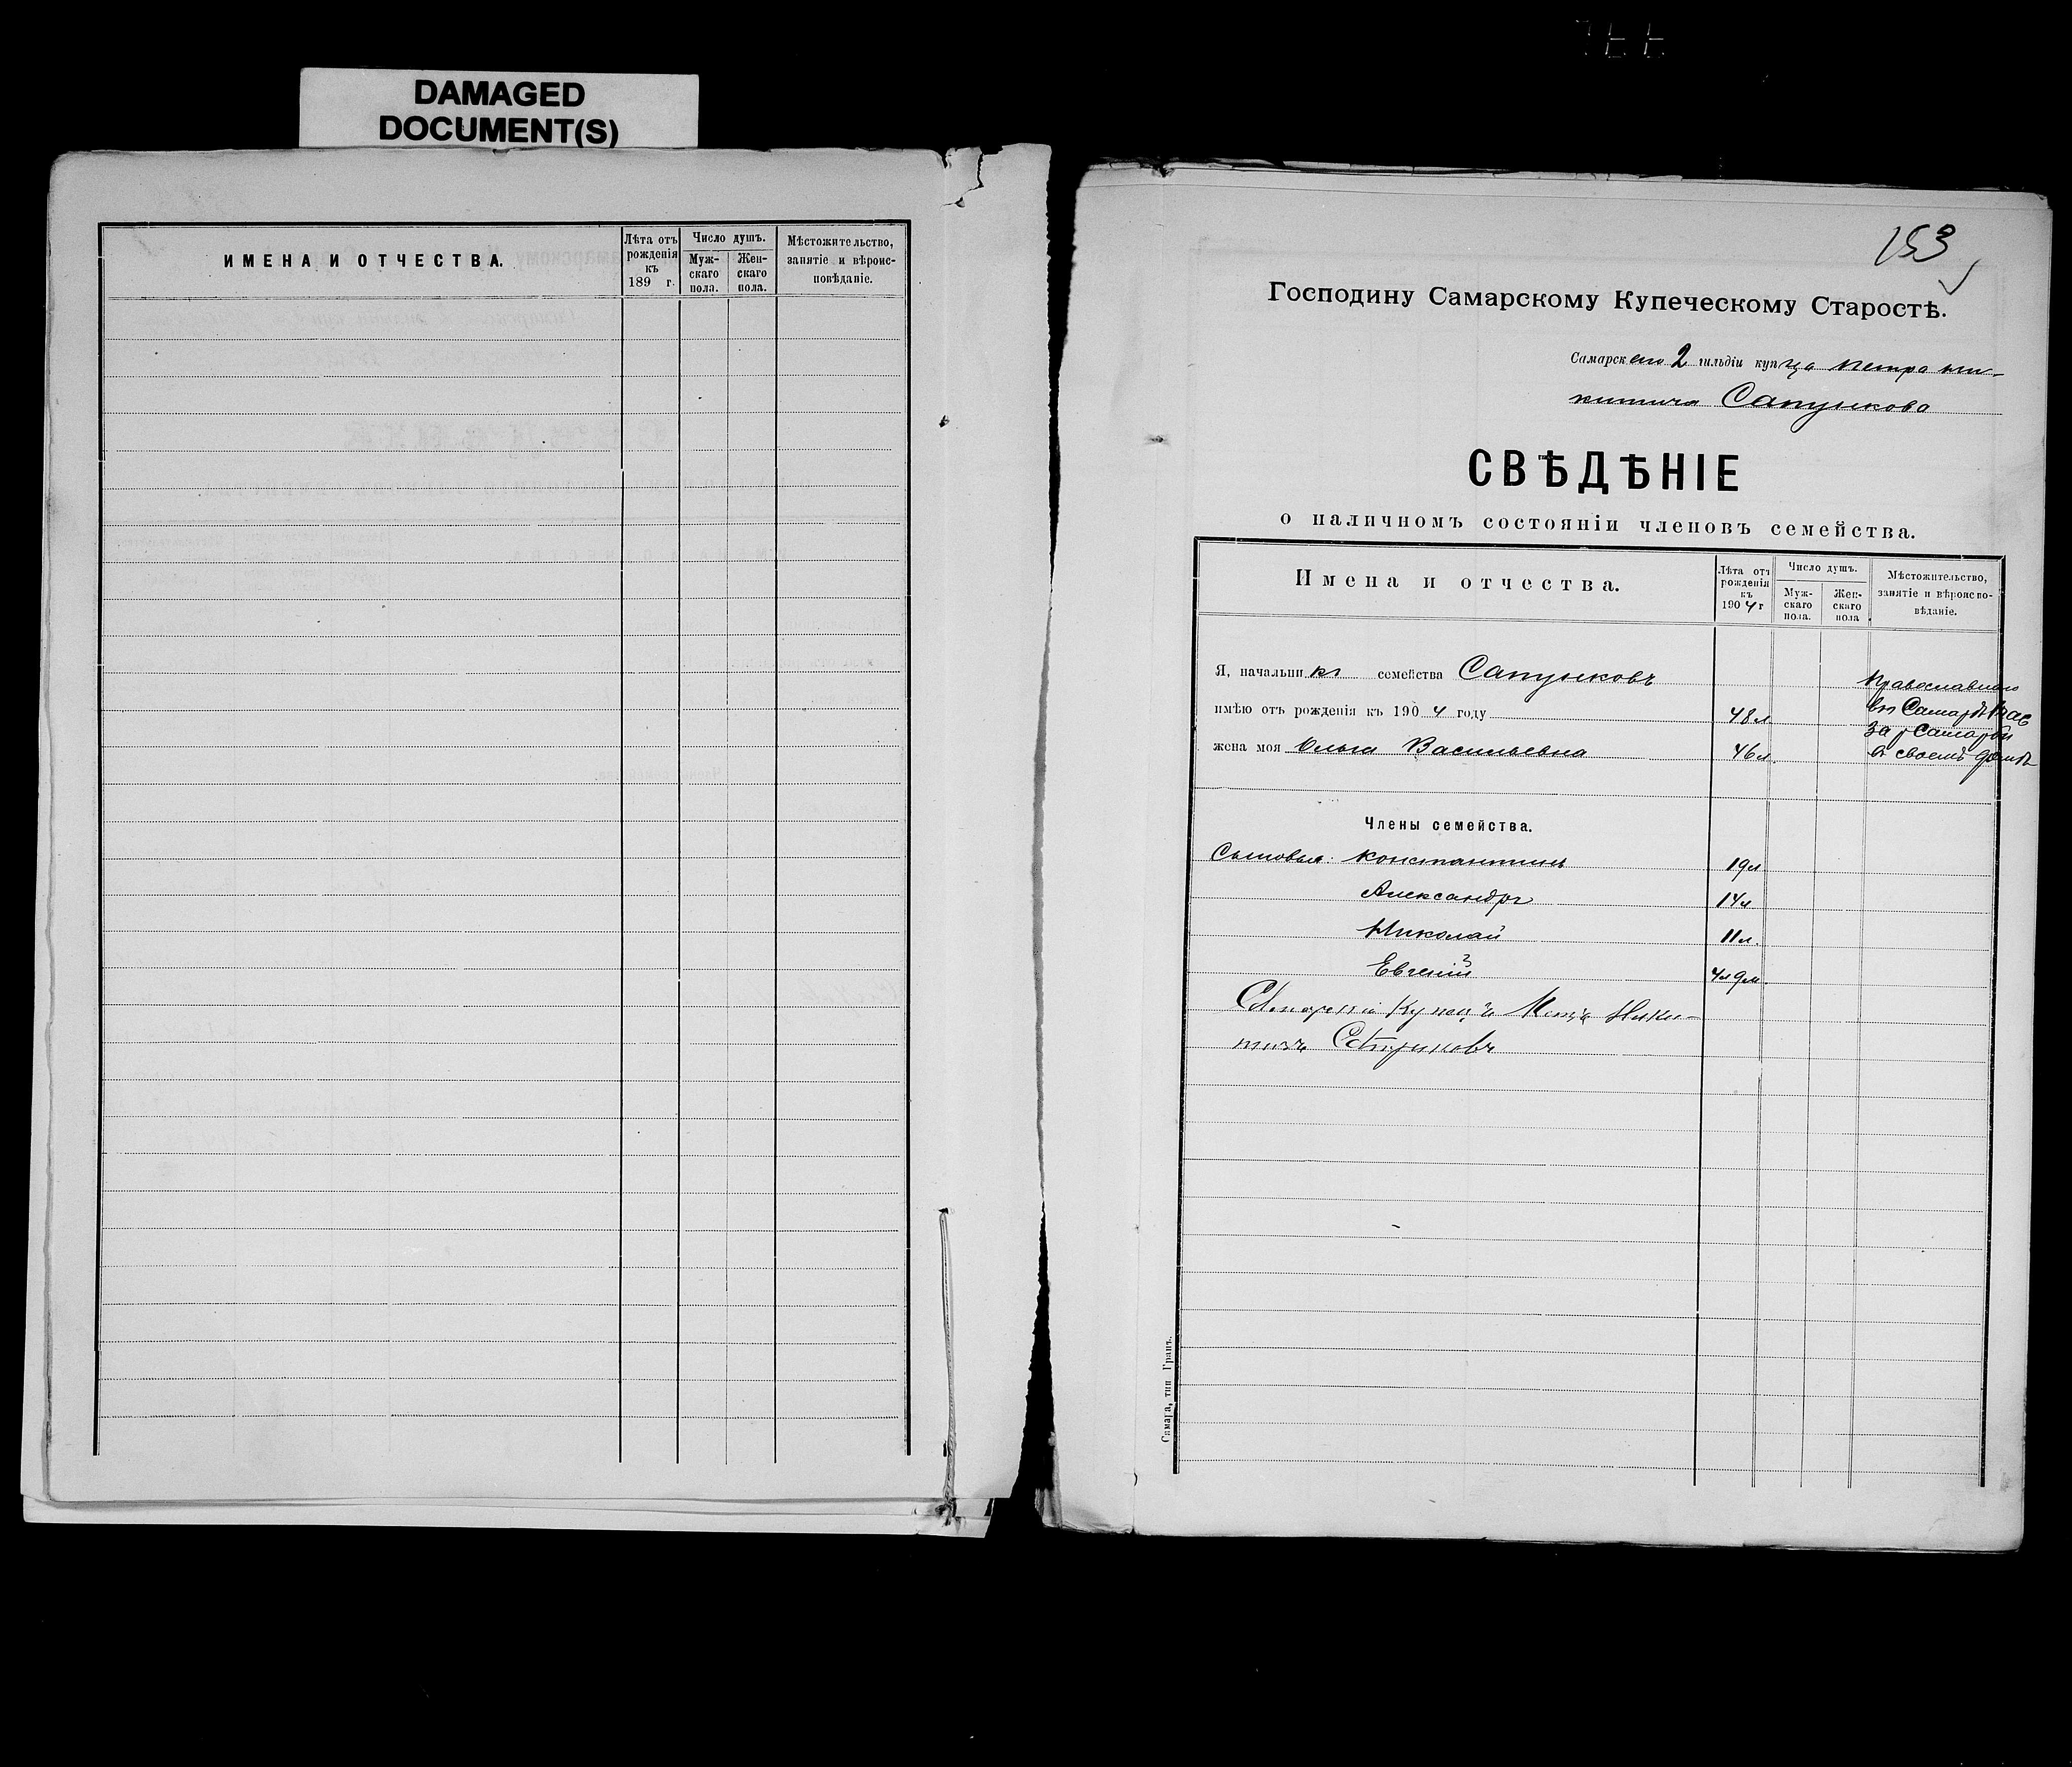 DAMAGED
DOCUMENT(S)
ИМЕНА И ОТЧЕСТВА.
Лѣта отъ рожденія къ 189 г.
Число душъ.
Муж-скаго пола.
Жен-скаго пола.
Мѣстожительство, занятіе и вѣроис-повѣданіе.
153
Господину Самарскому Купеческому Старостѣ.
Самарскаго 2 гильдіи купца Петра Ни-
китича Сапункова
СВѢДѢНІЕ
о наличномъ состояніи членовъ семейства.
Имена и отчества.
Лѣта отъ рожденія къ 1904 г
Число душъ.
Муж-скаго пола.
Жен-скаго пола
Мѣстожительство, занятіе и вѣроиспо-вѣданіе.
Я, начальникъ семейства Сапунковъ
Православнаго
имѣю отъ рожденія къ 1904 году 48 л
въ Самарѣ
за р Самарой
жена моя Ольга Васильевна 46 л.
в своемъ домѣ
Члены семейства.
Сыновья: Константинъ 19 л
Александръ 14 л
Николай 11 л.
Евгеній 3 4 л 9 м.
Самарскій Купецъ Петръ Ники-
тичъ Сапунковъ
Самара, тип Гранъ.